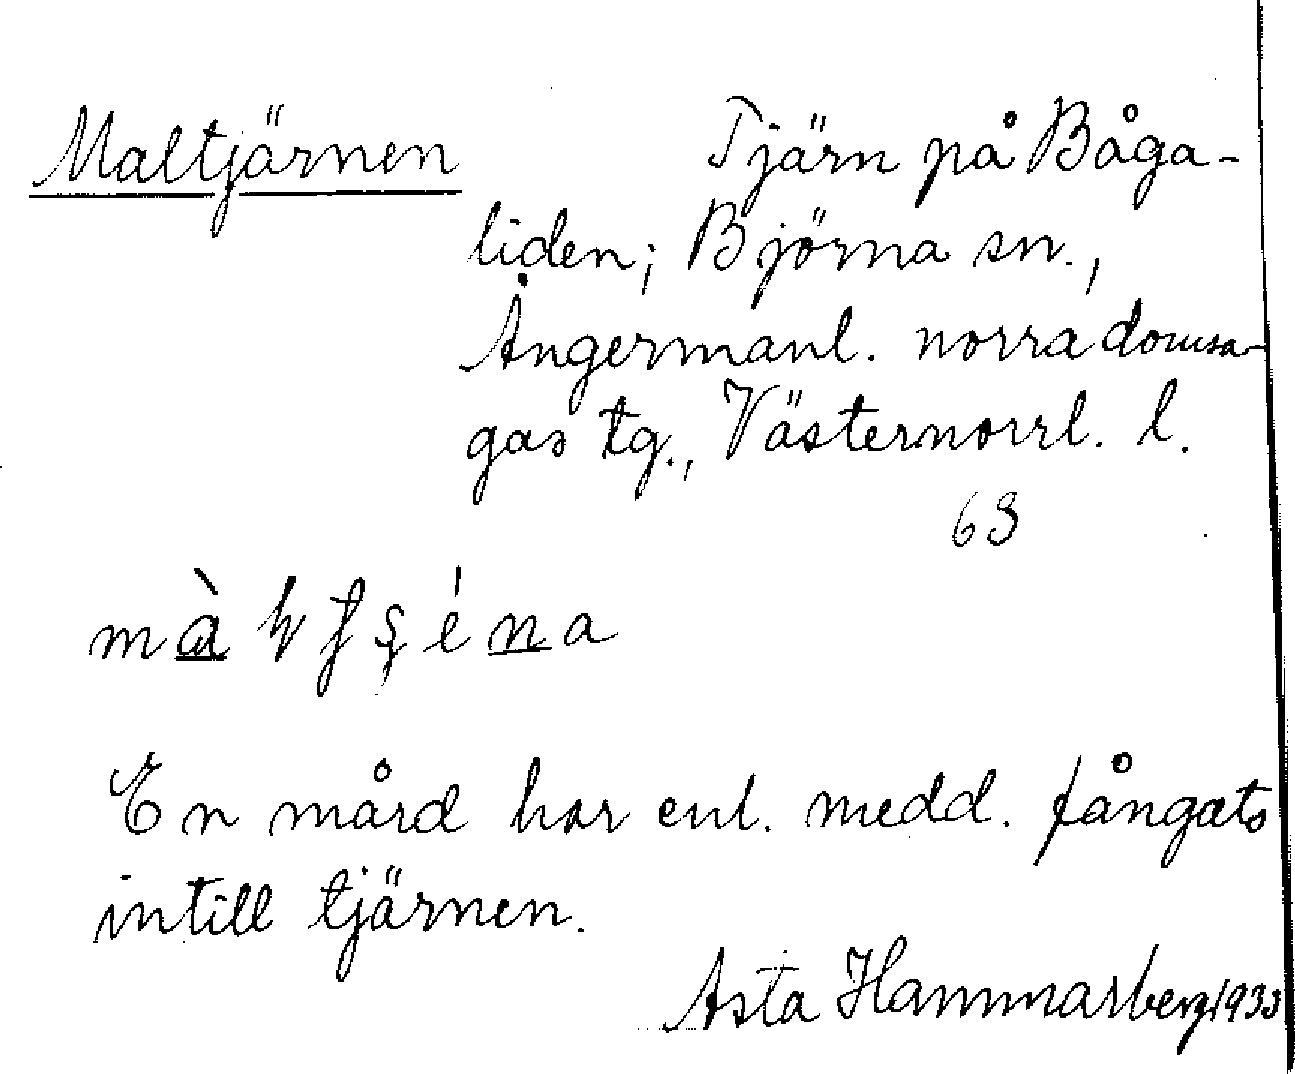 Maltjärnen Tjärn på Båga-
liden; Björna sn.,
Ångermanl. norra domsa-
gas tg., Västernorrl. l.
63
En mård har enl. medd. fångats
intill tjärnen.
Asta Hammarberg 1933